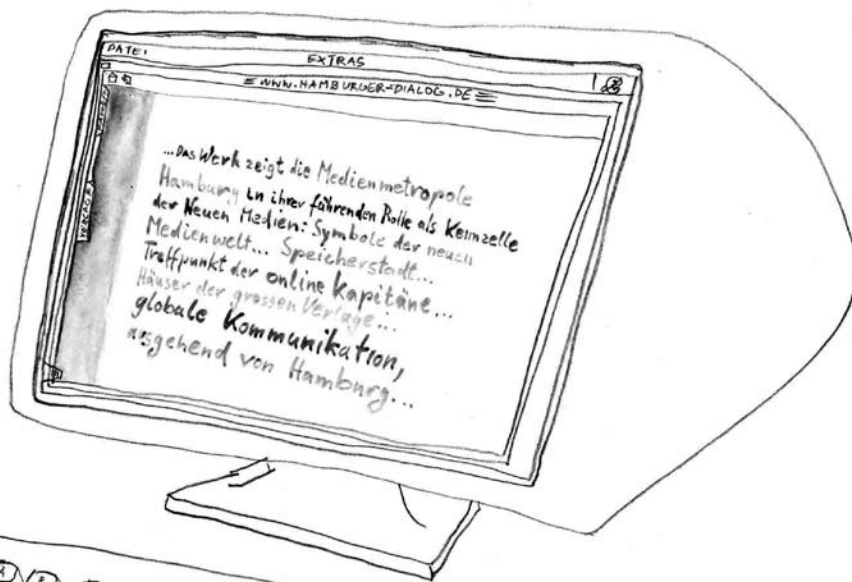 DATEI
EXTRAS
WWW.HAMBURGER-DIALOG.DE
...Das Werk zeigt die Medienmetropole
Hamburg in ihrer führenden Rolle als Keimzelle
der Neuen Medien: Symbole der neuen
Medienwelt... Speicherstadt...
Treffpunkt der online Kapitäne...
Häuser der grossen Verlage...
globale Kommunikation,
ausgehend von Hamburg...